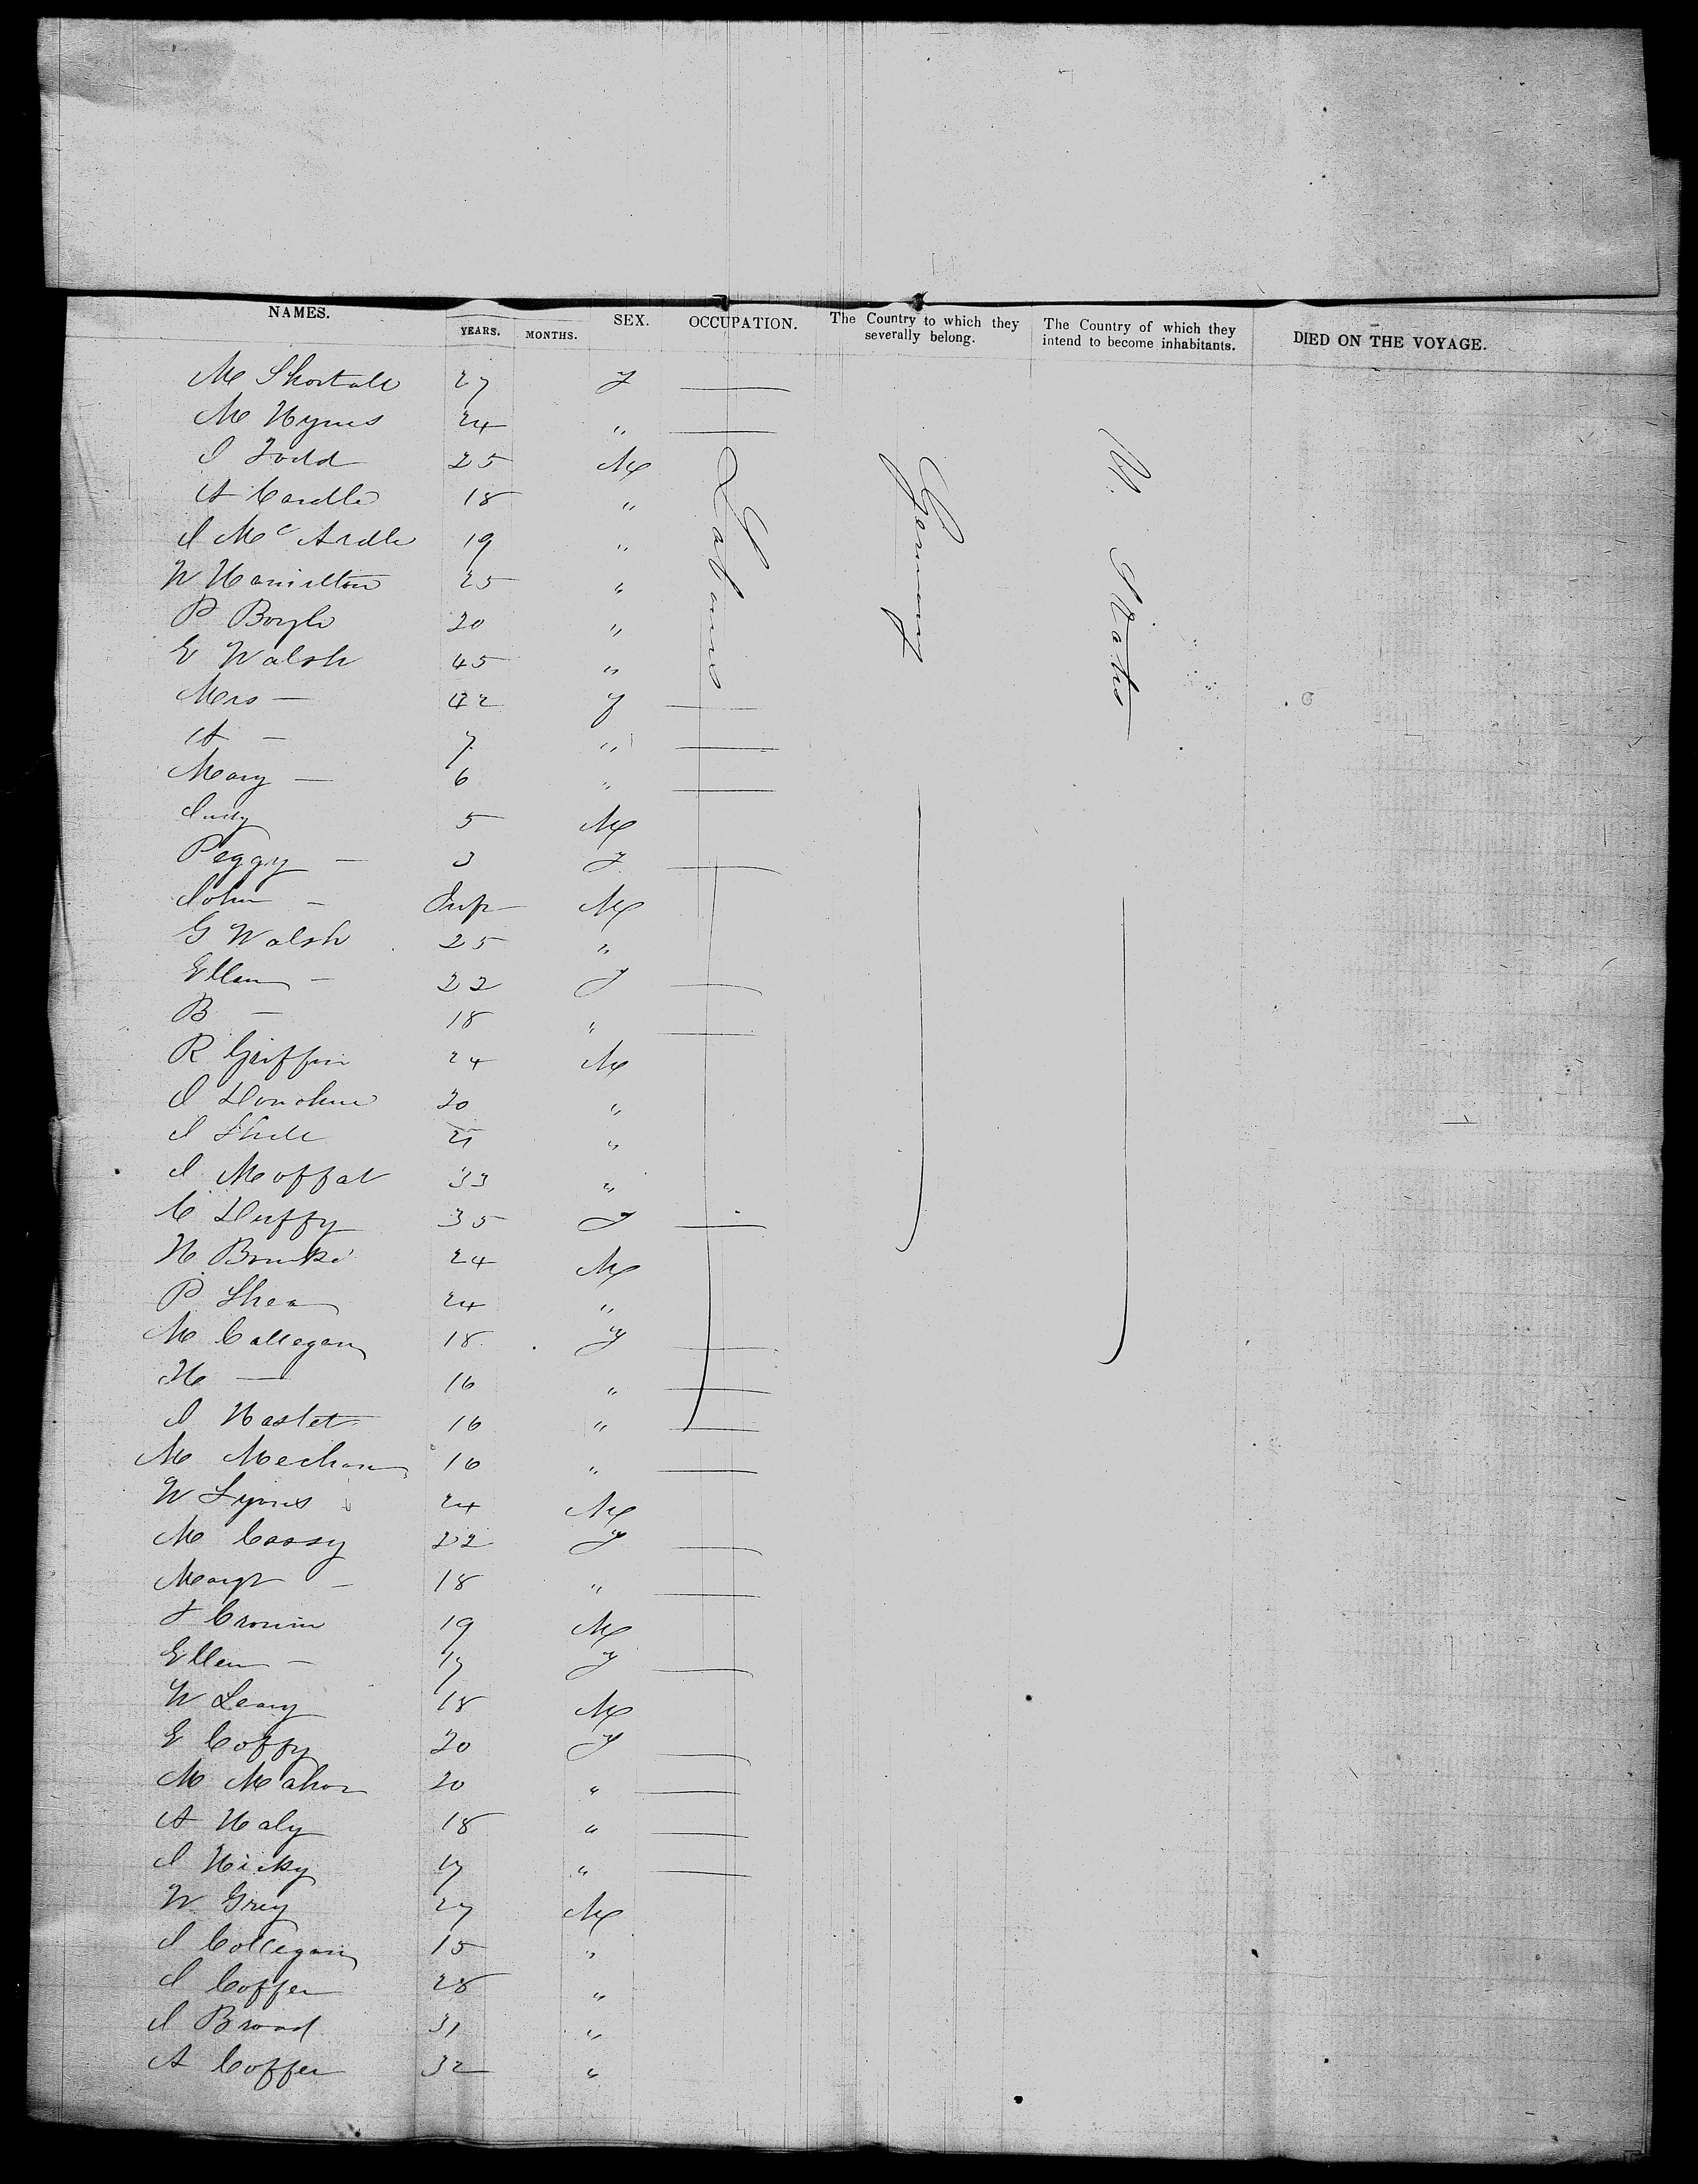 NAMES. YEARS. MONTHS. SEX. OCCUPATION. The Country to which they severally belong. The Country of which they intend to become inhabitants. DIED ON THE VOYAGE.
M Shortall 27 F —
M Hynes 24 " —
J Todd 25 M Labourers Germany U. States
A Cardle 18 "
J Mc Ardle 19 "
W Hamilton 25 "
P Boyle 20 "
E Walsh 45 "
Mrs — 42 F —
A — 7 " —
Mary — 6 " —
Judy 5 M
Peggy — 3 F —
John — Inf M
G Walsh 25 "
Ellen — 22 F —
B — 18 " —
R Griffin 24 M
J Donohue 20 "
J 21 "
J Moffat 33 "
C Duffy 35 F —
H Bourke 24 M
P Shea 24 "
M Callegan 18 F —
H — 16 " —
J Haslet 16 " —
M Mechan 16 " —
W Lyons 24 M
M Cassy 22 F —
Margt — 18 " —
T Cronin 19 M
Ellen — 17 F —
W Leary 18 M
E Coffy 20 F —
M Mahon 20 " —
A Haly 18 " —
J Hicky 17 " —
W Grey 27 M
J Collegan 15 "
J Coffer 28 "
J Broad 31 "
A Coffer 32 "